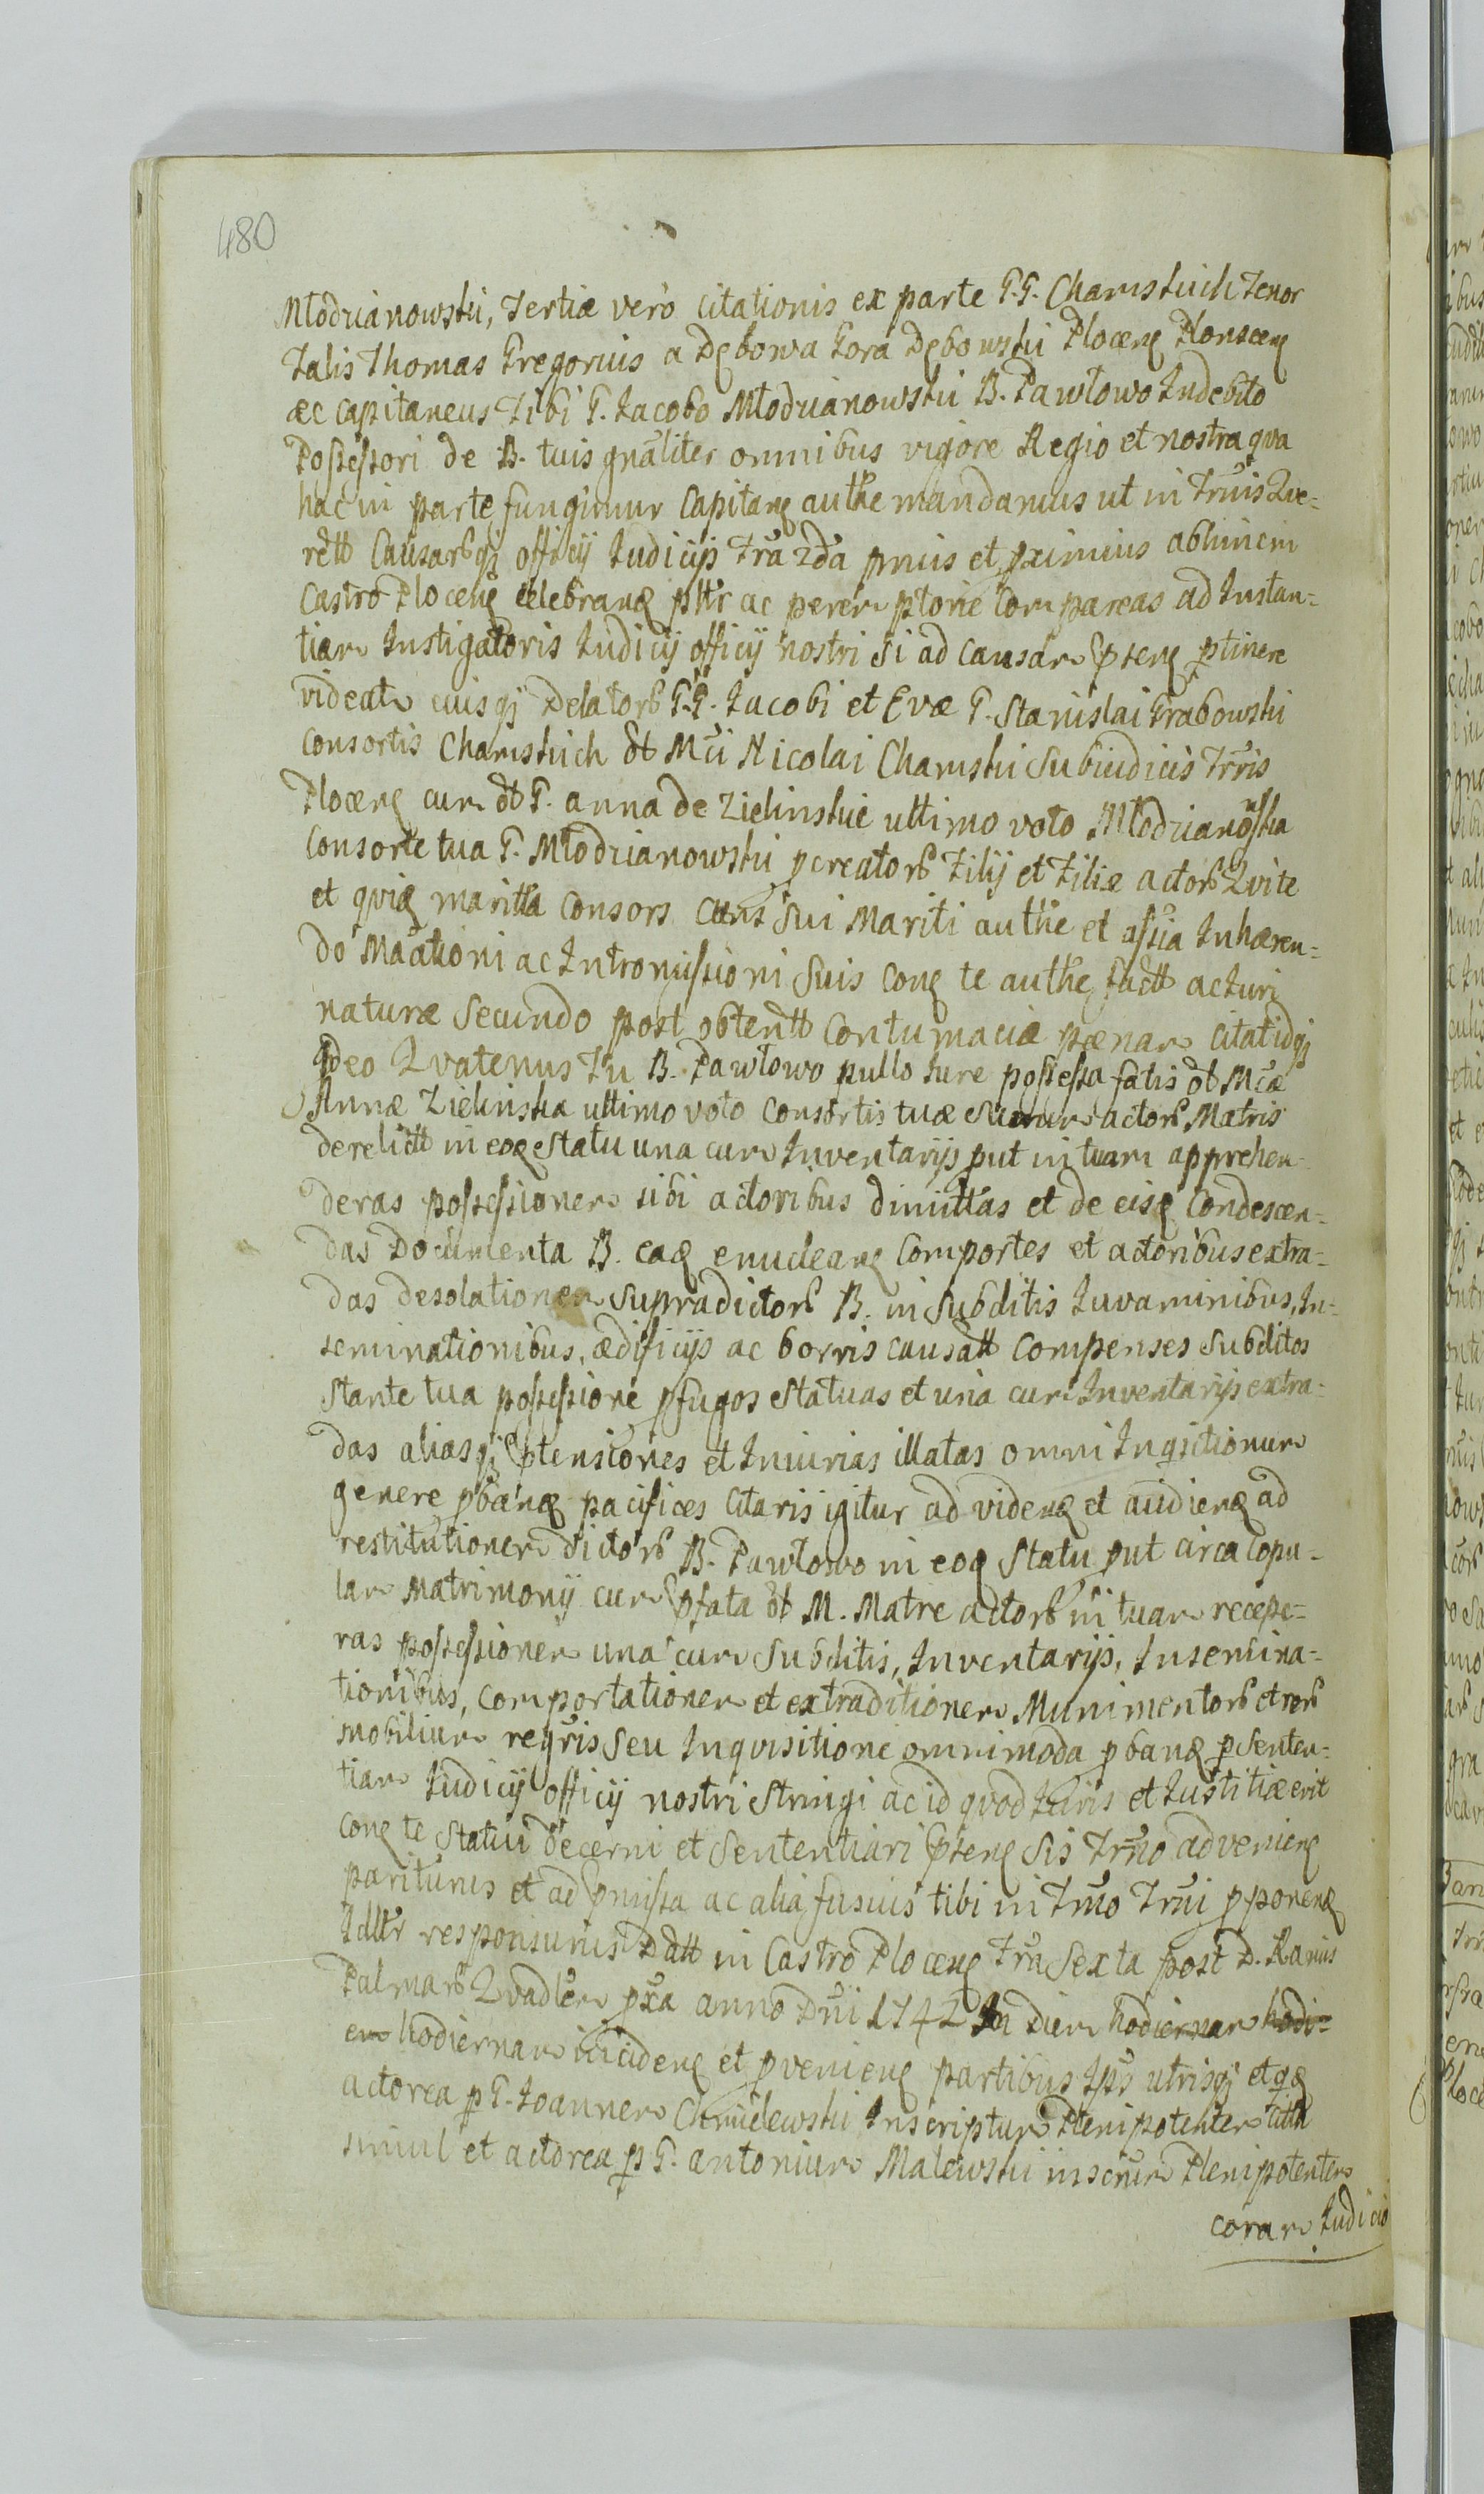 480
Młodzianowski, Tertiæ verò citationis ex parte G.G. Charnskich Tenor
Talis Thomas Gregorius a Dębowa Gora Dębowski Plocen̄ Plonscen̄
æc Capitaneus Tibi G. Jacobo Młodzianowski B. Pawłowo Indebito
Possessori de B. tuis gnāliter omnibus vigore Regio et nostra qva
hac in parte fungimur Capitan̄ authē mandamus ut in Trūis Qve-
rell Causarūqȝ officij Judicijs Frā 2dā pmis et pximius abhinc in
Castro Plocen̄ celebran̄ pltr ac peremptorie Compareas ad Instan-
tiam Instigatoris Judicij officij nostri Si ad Causam Pⁿten̄ ptinere
videatr eiusqȝ Delatorū G.G. Jacobi et Evæ G. Stanislai Grabowski
Consortis Charnskich ol M̄ci Nicolai Charnski Subiudicis Trr̄is
Plocen̄ cum ol G. anna de Zielinskie ultimo voto Młodzianoska
Consorte tua G. Młodzianowski pcreatorū Filij et Filiæ actorū Qvi te
et qviā maritta Consors Cuns Sui Mariti authē et assia Inhæren-
do Maātioni ac Intromissioni Suis Con̄ te authē fact acturi
naturæ Secundo post obtent Contumaciæ pænam citatidqȝ
ideo Qvatenus Tu B. Pawłowo nullo Jure possessa fatis ol M̄cæ
Annæ Zielinska ultimo voto Consortis tuæ actorū Matris
derelict in eoꝗ Statu una cum Inventarijs put in tuam apprehen-
deras possessionem sibi actoribus dimittas et de eisꝗ Condescen-
das Documenta B. eaꝗ enuclean̄ Comportes et actoribus extra-
das desolationem Supradictorū B. in Subditis Iuvaminibus, In-
seminationibus, ædificijs ac borris causatt Compenses Subditos
Stante tua possessione pfugos Statuas et unā cum Inventarijs extra-
das aliasqȝ Ptensiones et Iniurias illatas omni Inqsitionum
genere pban̄ꝗ pacifices Citaris igitur ad viden̄ꝗ et audien̄ꝗ ad
restitutionem dictorū B. Pawłowo in eoꝗ Statu put circa Copu-
lam Matrimonij cum Pfata ol M. Matre actorū in tuam recepe-
ras possessionem una cum Subditis, Inventarijs, Insemina-
tionibus, Comportationem et extraditionem Munimentorū et rerū
mobilium reqris seu Inqvisitione omnimoda pban̄ꝗ p Senten-
tiam Judicij officij nostri Stringi ac id qvod Juris et Justitiæ erit
Con̄ te Statui decerni et Sententiari Pⁿten̄ Sis Trno advenien̄
pariturus et ad Pmissa ac alia fusius tibi in Trno Trui pponen̄ꝗ
Idltr responsurus Datt in Castro Plocen̄ Frā Sexta post D. Ramis
Palmarū Qvadlem pxa anno Dni 1742 In Diem hodiernam hodi-
em hodiernam inciden̄ et pvenien̄ partibus Ipsi utrisqȝ et qꝗ
actorea p G. Joannem Chmielewski Inscriptum Plenipotentem citta
simul et actorea p G. antonium Malewski inscrum Plenipotentem
coram Judicio